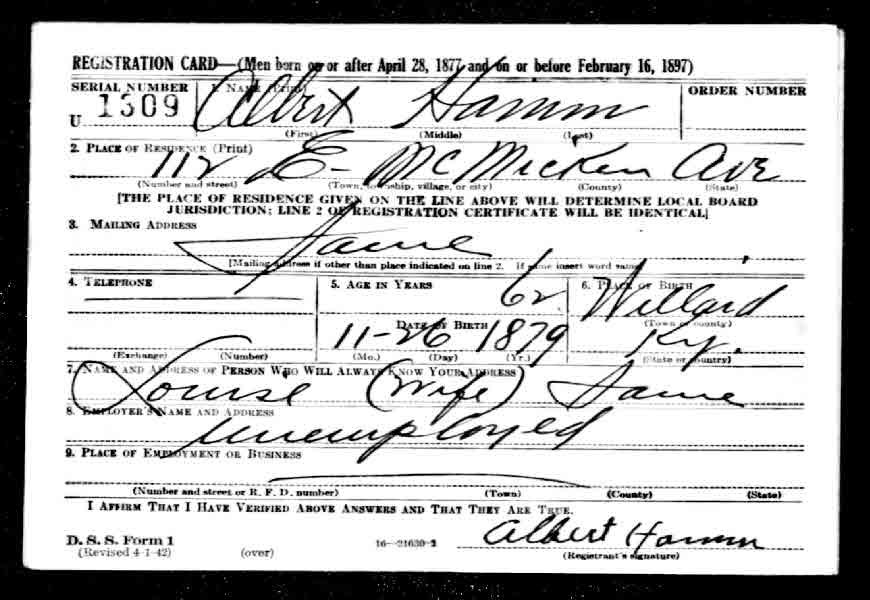 REGISTRATION CARD—(Men born on or after April 28, 1877 and on or before February 16, 1897)
SERIAL NUMBER 1. NAME (Print) ORDER NUMBER
U 1309 Albert Hamm
(First) (Middle) (Last)
2. PLACE OF RESIDENCE (Print)
112 E- McMicken Ave
(Number and street) (Town, township, village, or city) (County) (State)
[THE PLACE OF RESIDENCE GIVEN ON THE LINE ABOVE WILL DETERMINE LOCAL BOARD
JURISDICTION; LINE 2 OF REGISTRATION CERTIFICATE WILL BE IDENTICAL]
3. MAILING ADDRESS
Same
[Mailing address if other than place indicated on line 2. If same insert word same]
4. TELEPHONE 5. AGE IN YEARS 6. PLACE OF BIRTH
62 Willard
DATE OF BIRTH (Town or county)
11-26 1879 Ky.
(Exchange) (Number) (Mo.) (Day) (Yr.) (State or country)
7. NAME AND ADDRESS OF PERSON WHO WILL ALWAYS KNOW YOUR ADDRESS
Louise (Wife) Same
8. EMPLOYER'S NAME AND ADDRESS
unemployed
9. PLACE OF EMPLOYMENT OR BUSINESS
(Number and street or R. F. D. number) (Town) (County) (State)
I AFFIRM THAT I HAVE VERIFIED ABOVE ANSWERS AND THAT THEY ARE TRUE.
D. S. S. Form 1 Albert Hamm
(Revised 4-1-42) (over) 16—21630-2 (Registrant's signature)